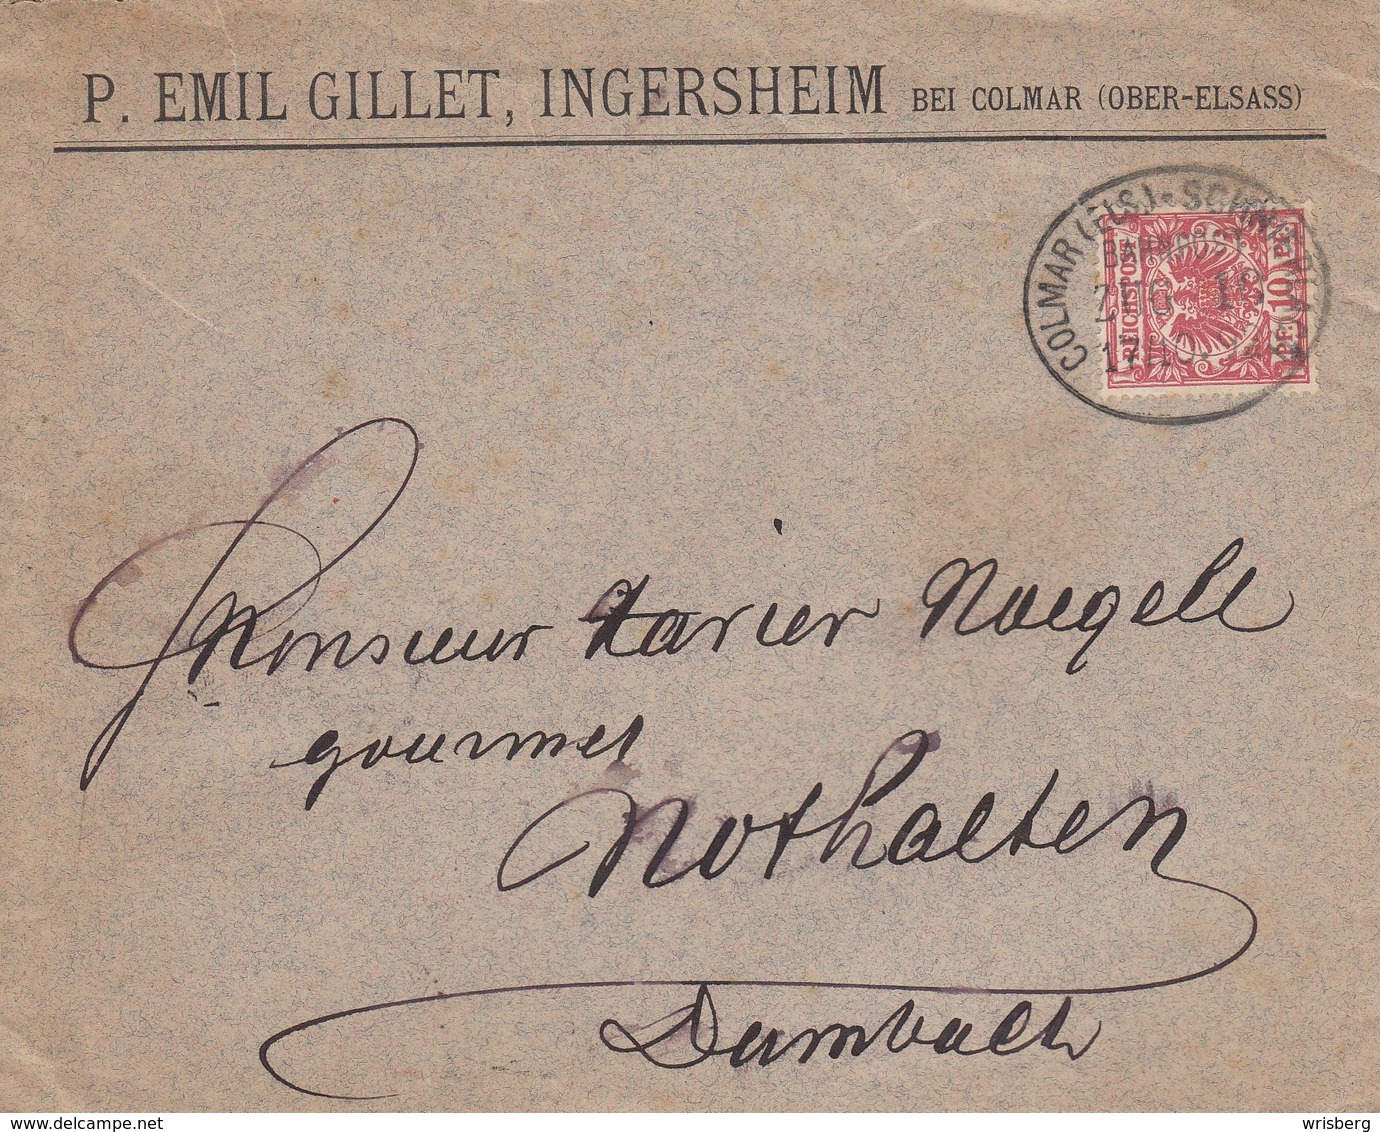 P. EMIL GILLET, INGERSHEIM BEI COLMAR (OBER-ELSASS)
COLMAR (ELS.)-
BAHNPOST
ZUG 18
REICHSPOST
10 PF. 10
Monsieur Xavier Naegele
gourmet
Nothalten
Dambach
www.delcampe.net
wrisberg